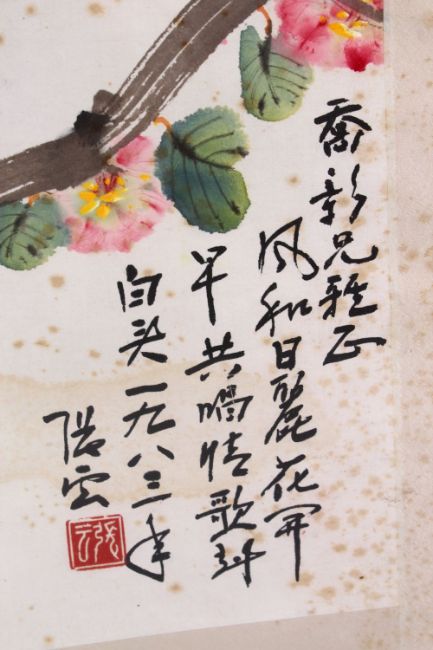 喬 兄雅正
风和日麗花開
早共唱情歌到
白头一九八三年
张云
张云